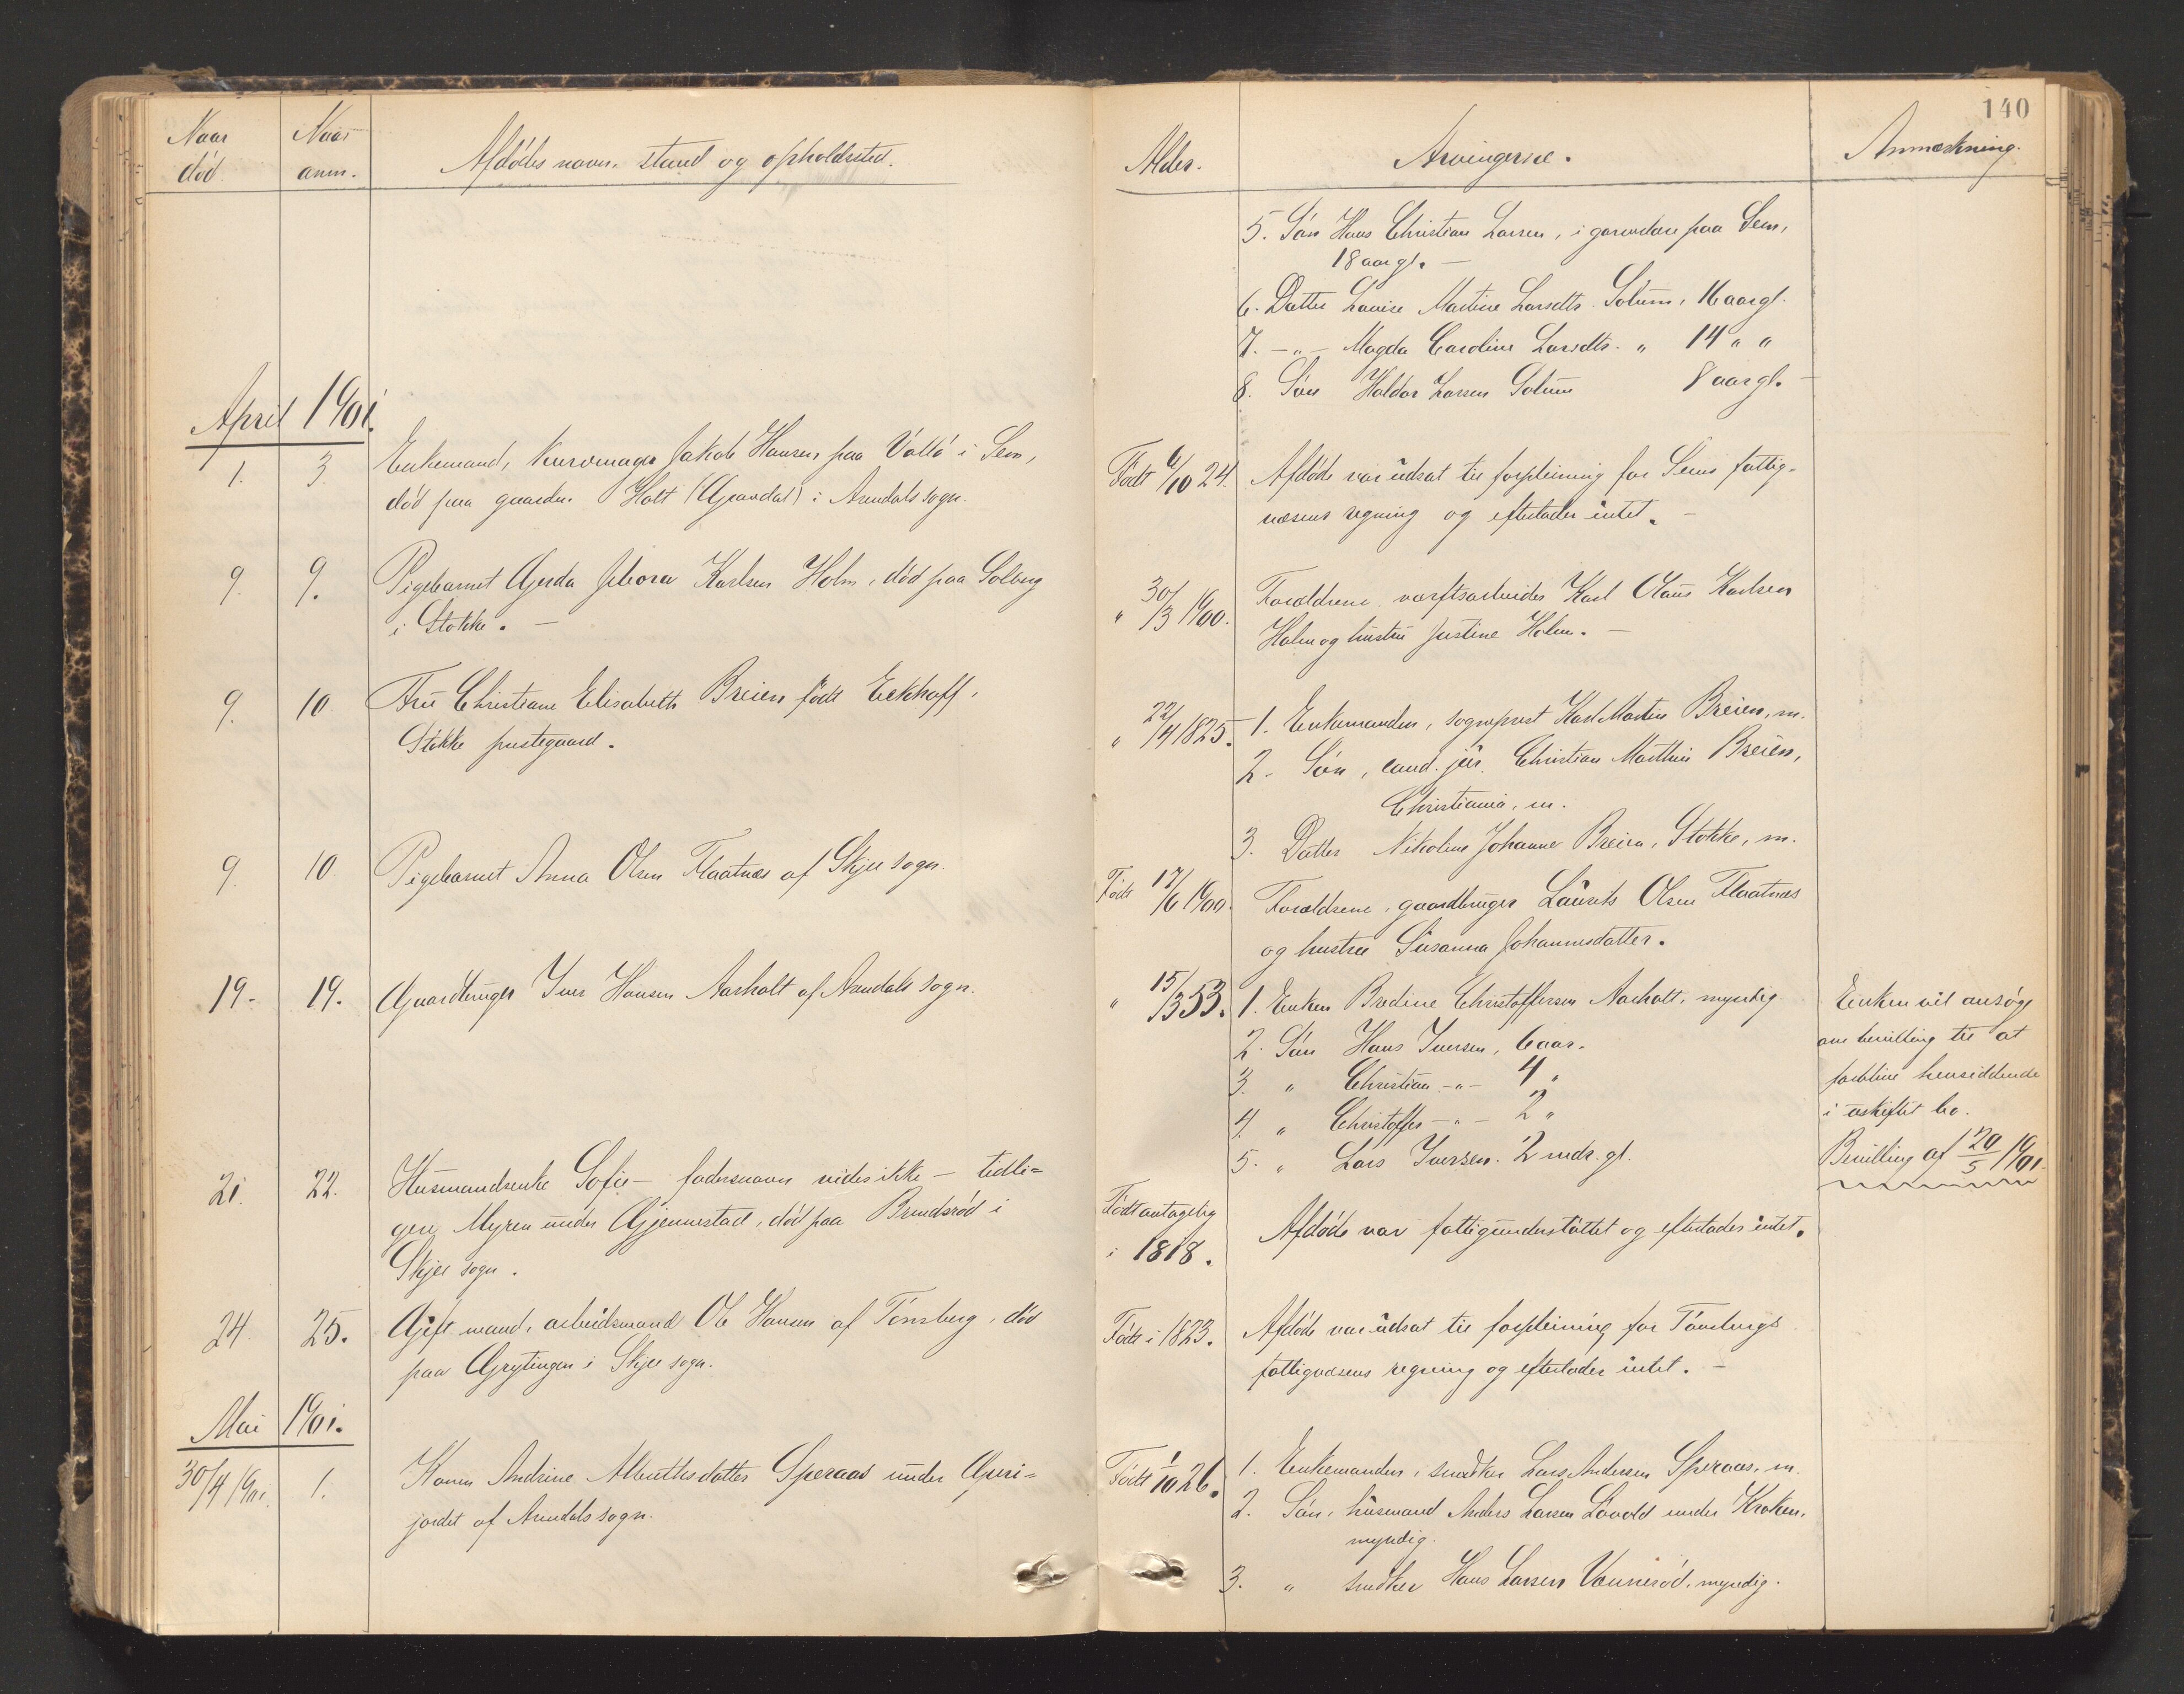 140
Naar død.
Naar anm.
Afdødes navn, stand og opholdssted.
Alder.
Arvingerne.
Anmerkning.
5. Søn Hans Christian Larsen, i garverlære paa Sem,
18 aar gl. —
6. Datter Lovise Martine Larsdtr. Solum, 16 aar gl.
7. —„— Magda Caroline Larsdtr. „ 14 „ „
8. Søn Haldor Larsen Solum 8 aar gl. —
April 1901.
1. 3. Enkemand, kurvmager Jakob Hansen paa Vallø i Sem,
død paa gaarden Holt (Gravdal) i Arendals sogn.
Født 6/10 24.
Afdøde var udsat til forpleining for Sems fattig-
væsens regning og efterlader intet. —
9. 9. Pigebarnet Gerda Febora Karlsen Holm, død paa Solberg
i Stokke. —
„ 30/3 1900.
Forældrene værftsarbeider Karl Olaus Karlsen
Holm og hustru Justine Holm. —
9. 10. Fru Christiane Elisabeth Breien født Eckhoff,
Stokke prestegaard.
„ 22/4 1825.
1. Enkemanden, sogneprest Karl Martin Breien, m.
2. Søn, cand. jur. Christian Matthin Breien,
Christiania, m.
3. Datter Nikoline Johanne Breien, Stokke, m.
9. 10. Pigebarnet Anna Olsen Flaatnes af Skjee sogn.
Født 17/6 1900.
Forældrene, gaardbruger Laurits Olsen Flaatnes
og hustru Susanna Johannesdatter.
19. 19. Gaardbruger Iver Hansen Aasholt af Arendals sogn.
„ 15/3 53.
1. Enken Bredine Christoffersen Aasholt, myndig.
2. Søn Hans Iversen, 6 aar.
3. „ Christian —„— 4 „
4. „ Christoffer —„— 2 „
5. „ Lars Iversen. 2 mdr. gl.
Enken vil ansøge
om bevilling til at
forblive hensiddende
i uskiftet bo.
Bevilling af 20/5 1901.
21. 22. Husmandsenke Sofie — fadersnavn vides ikke — tidli-
gere Myren under Gjennestad, død paa Brundsrød i
Skjee sogn.
Født antagelig
i 1818.
Afdøde var fattigunderstøttet og efterlader intet.
24. 25. Gift mand, arbeidsmand Ole Hansen af Tønsberg, død
paa Grytingen i Skjee sogn.
Født i 1823.
Afdøde var udsat til forpleining for Tønsbergs
fattigvæsens regning og efterlader intet. —
Mai 1901.
30/4 1901. 1. Konen Andrine Alberthsdatter Speraas under Gjeri-
jordet af Arendals sogn.
Født 1/10 26.
1. Enkemanden, snedker Lars Andersen Speraas, m.
2. Søn, husmand Anders Larsen Løvold under Kroken,
myndig.
3. „ snedker Hans Larsen Vennerød, myndig.